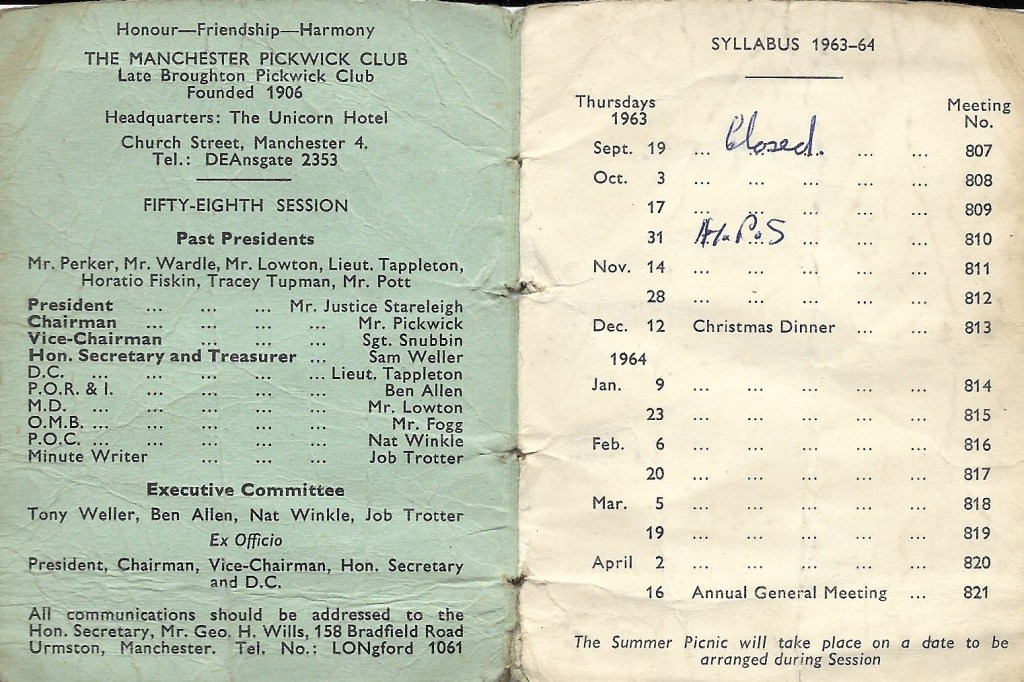 Honour—Friendship—Harmony
THE MANCHESTER PICKWICK CLUB
Late Broughton Pickwick Club
Founded 1906
Headquarters: The Unicorn Hotel
Church Street, Manchester 4.
Tel.: DEAnsgate 2353
FIFTY-EIGHTH SESSION
Past Presidents
Mr. Perker, Mr. Wardle, Mr. Lowton, Lieut. Tappleton,
Horatio Fiskin, Tracey Tupman, Mr. Pott
President ... ... ... Mr. Justice Stareleigh
Chairman ... ... ... ... Mr. Pickwick
Vice-Chairman ... ... ... Sgt. Snubbin
Hon. Secretary and Treasurer ... Sam Weller
D.C. ... ... ... ... ... Lieut. Tappleton
P.O.R. & I. ... ... ... ... Ben Allen
M.D. ... ... ... ... ... Mr. Lowton
O.M.B. ... ... ... ... ... Mr. Fogg
P.O.C. ... ... ... ... ... Nat Winkle
Minute Writer ... ... ... Job Trotter
Executive Committee
Tony Weller, Ben Allen, Nat Winkle, Job Trotter
Ex Officio
President, Chairman, Vice-Chairman, Hon. Secretary
and D.C.
All communications should be addressed to the
Hon. Secretary, Mr. Geo. H. Wills, 158 Bradfield Road
Urmston, Manchester. Tel. No.: LONgford 1061
SYLLABUS 1963-64
Thursdays Meeting
1963 No.
Sept. 19 ... Closed. ... ... 807
Oct. 3 ... ... ... ... ... 808
17 ... ... ... ... ... 809
31 ... ... ... 810
Nov. 14 ... ... ... ... ... 811
28 ... ... ... ... ... 812
Dec. 12 Christmas Dinner ... ... 813
1964
Jan. 9 ... ... ... ... ... 814
23 ... ... ... ... ... 815
Feb. 6 ... ... ... ... ... 816
20 ... ... ... ... ... 817
Mar. 5 ... ... ... ... ... 818
19 ... ... ... ... ... 819
April 2 ... ... ... ... ... 820
16 Annual General Meeting ... 821
The Summer Picnic will take place on a date to be
arranged during Session